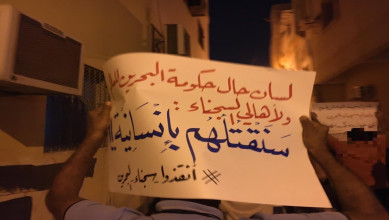 لسان حال حكومة البحرين
ولأهالي السجناء :
سنقتلهم بإنسانية
# أنقذوا سجناء البحرين